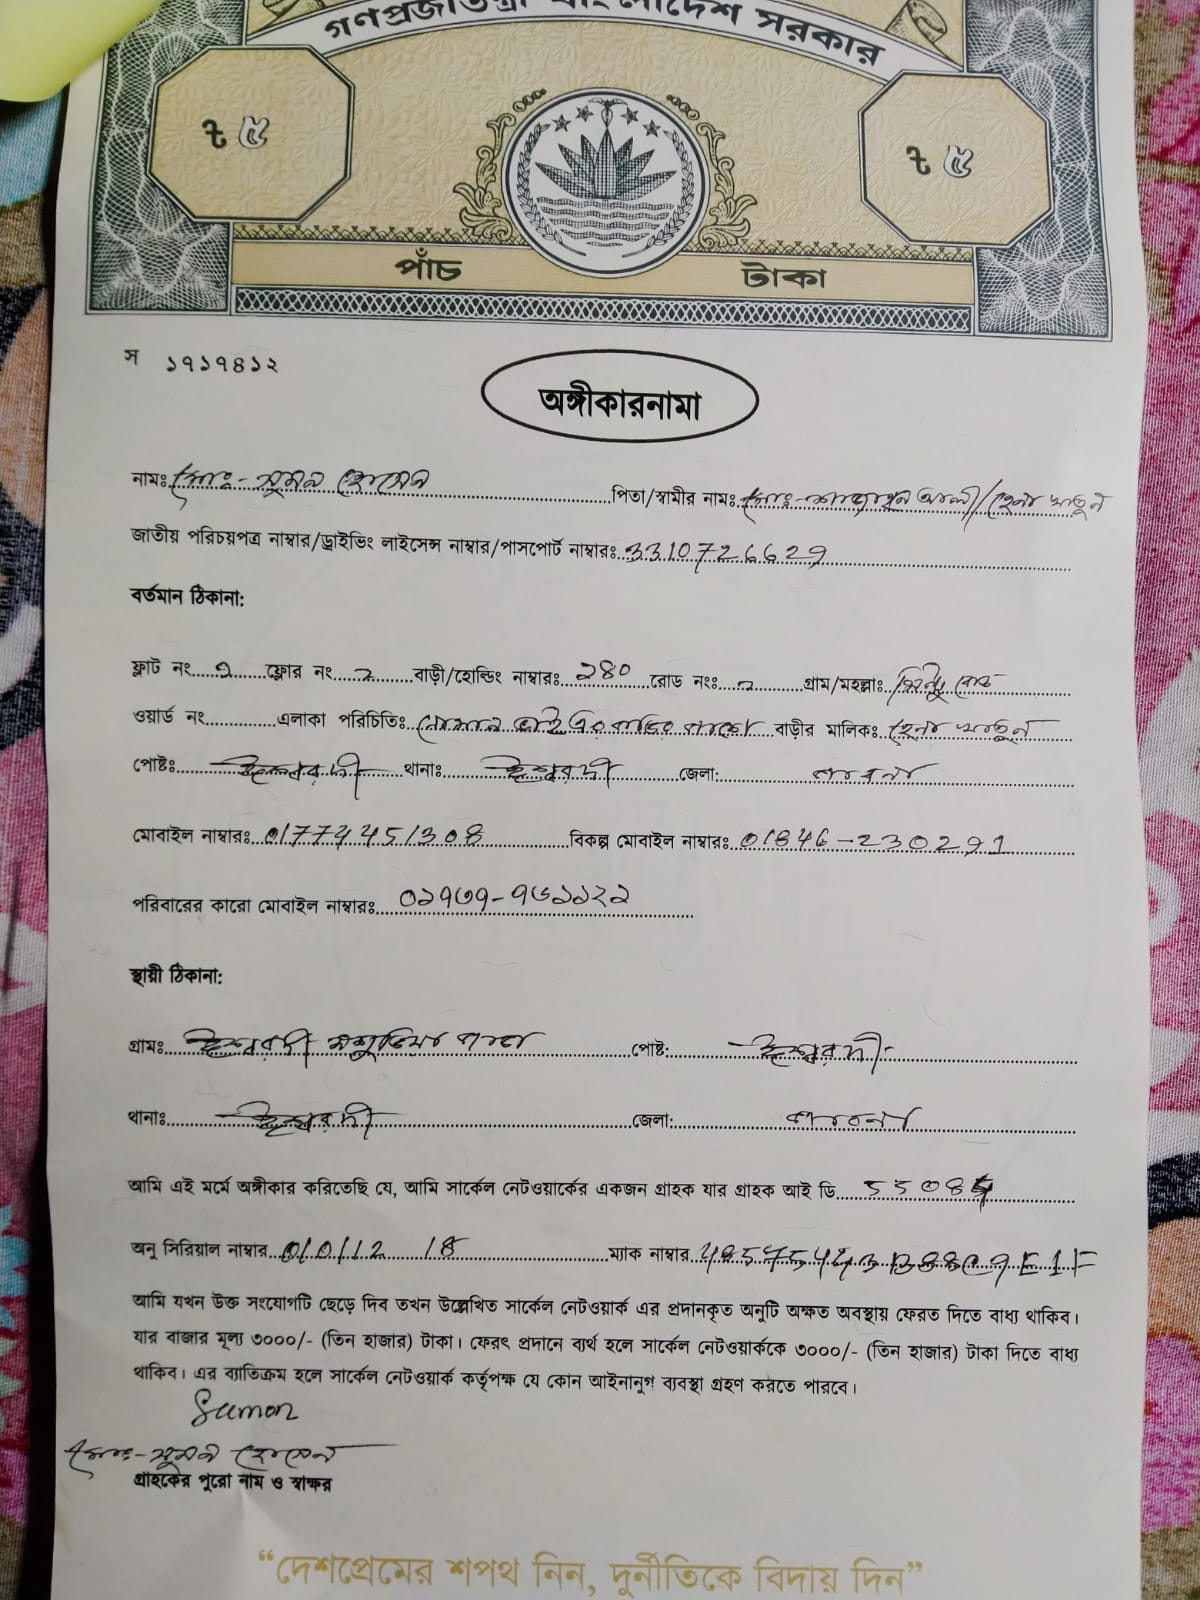 গণপ্রজাতন্ত্রী বাংলাদেশ সরকার
৳ ৫ ৳ ৫
পাঁচ টাকা
স ১৭১৭৪১২
অঙ্গীকারনামা
নামঃ মোঃ-সুমন হোসেন পিতা/স্বামীর নামঃ মোঃ-শাজাহান আলী/হেনা খাতুন
জাতীয় পরিচয়পত্র নাম্বার/ড্রাইভিং লাইসেন্স নাম্বার/পাসপোর্ট নাম্বারঃ 3310726629
বর্তমান ঠিকানা:
ফ্লাট নং ফ্লোর নং বাড়ী/হোল্ডিং নাম্বারঃ ২৪০ রোড নংঃ গ্রাম/মহল্লাঃ
ওয়ার্ড নং এলাকা পরিচিতিঃ বাড়ীর মালিকঃ হেনা খাতুন
পোষ্টঃ ঈশ্বরদী থানাঃ ঈশ্বরদী জেলা: পাবনা
মোবাইল নাম্বারঃ 01774451308 বিকল্প মোবাইল নাম্বারঃ 01846-230291
পরিবারের কারো মোবাইল নাম্বারঃ ০১৭৩৭-৭৬১১২২
স্থায়ী ঠিকানা:
গ্রামঃ ঈশ্বরদী পাড়া পোষ্ট: ঈশ্বরদী
থানাঃ ঈশ্বরদী জেলা: পাবনা
আমি এই মর্মে অঙ্গীকার করিতেছি যে, আমি সার্কেল নেটওয়ার্কের একজন গ্রাহক যার গ্রাহক আই ডি
অনু সিরিয়াল নাম্বার ম্যাক নাম্বার
আমি যখন উক্ত সংযোগটি ছেড়ে দিব তখন উল্লেখিত সার্কেল নেটওয়ার্ক এর প্রদানকৃত অনুটি অক্ষত অবস্থায় ফেরত দিতে বাধ্য থাকিব।
যার বাজার মূল্য ৩০০০/- (তিন হাজার) টাকা। ফেরৎ প্রদানে ব্যর্থ হলে সার্কেল নেটওয়ার্ককে ৩০০০/- (তিন হাজার) টাকা দিতে বাধ্য
থাকিব। এর ব্যাতিক্রম হলে সার্কেল নেটওয়ার্ক কর্তৃপক্ষ যে কোন আইনানুগ ব্যবস্থা গ্রহণ করতে পারবে।
Sumon
মোঃ-সুমন হোসেন
গ্রাহকের পুরো নাম ও স্বাক্ষর
“দেশপ্রেমের শপথ নিন, দুর্নীতিকে বিদায় দিন”